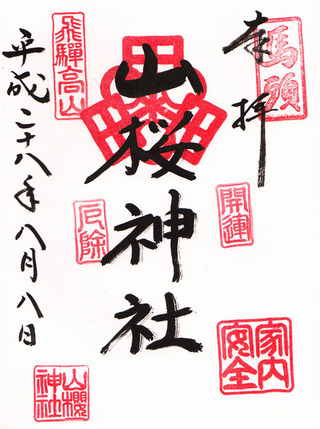 馬頭
奉拝
開運
家内
安全
山桜神社
厄除
飛騨高山
平成二十八年八月八日
山櫻
神社